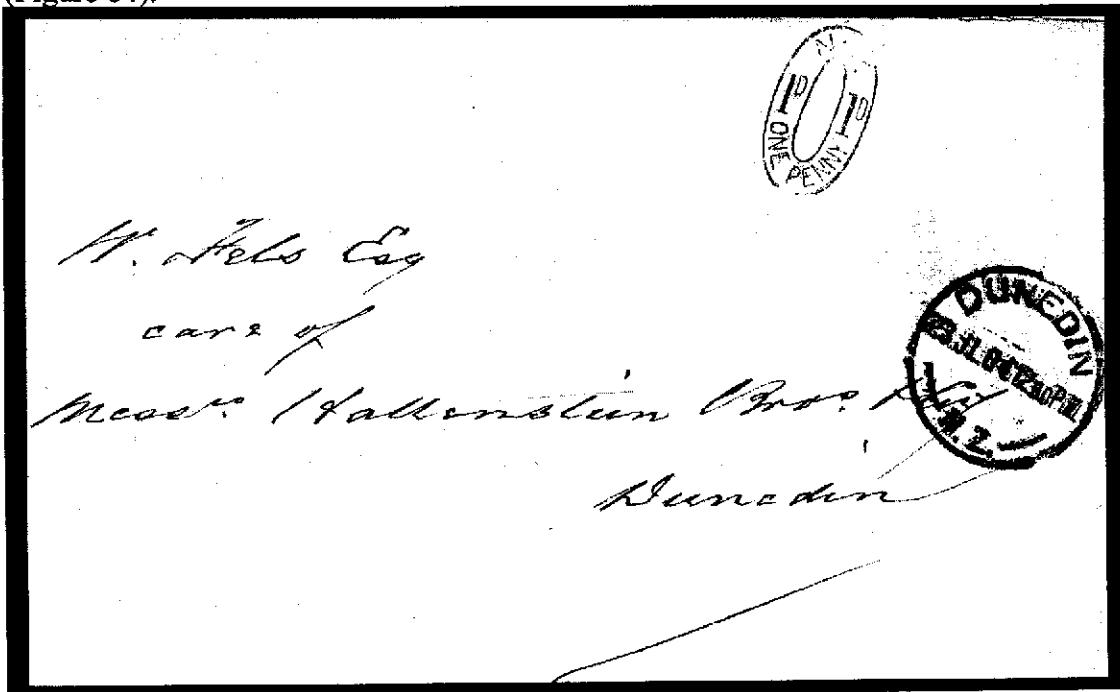 N.
1D 1D
ONE PENNY
W. Fels Esq
care of
Messrs. Hallenstein Bros.
DUNEDIN
N.Z.
Dunedin